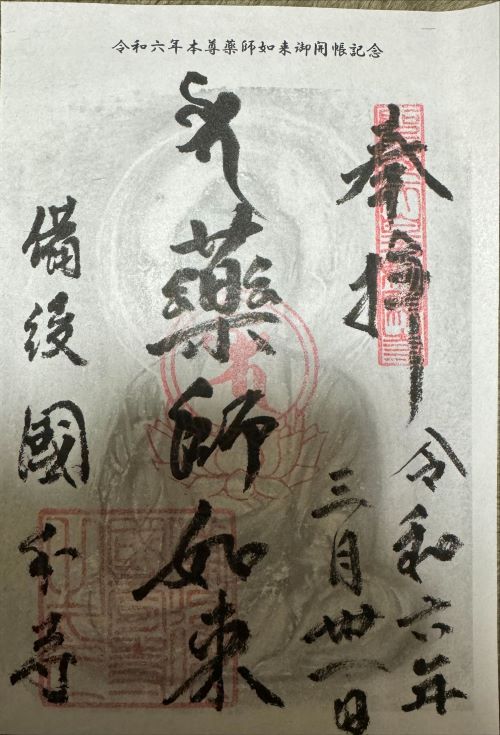 令和六年本尊藥師如来御開帳記念
奉拝
令和六年
三月卅一日
藥師如来
備後國分寺